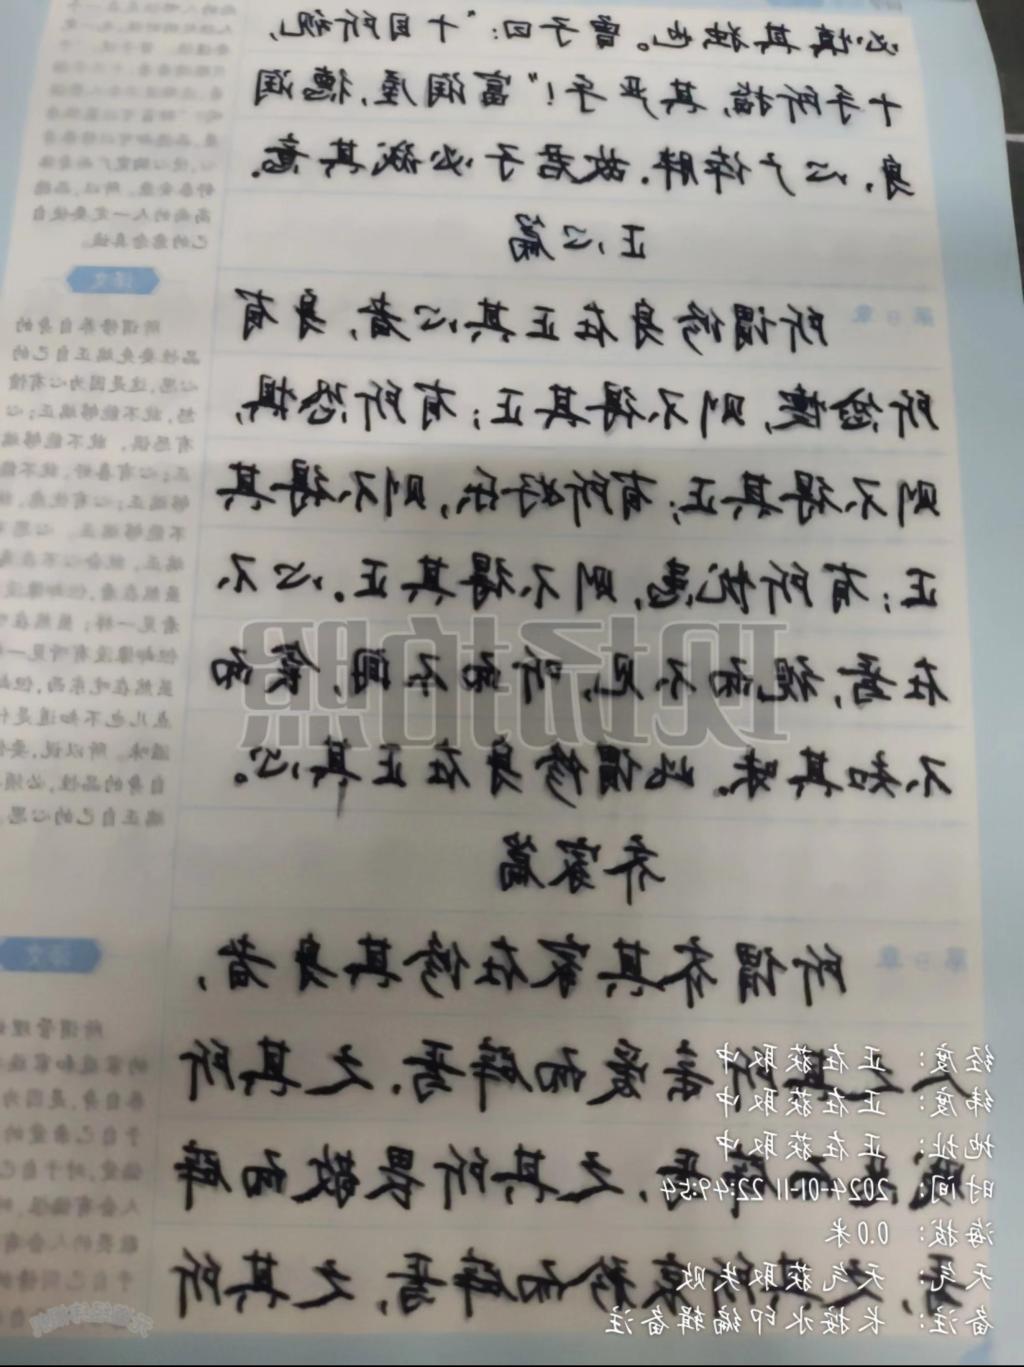 必慎其独也。曾子曰：“十目所视，
十手所指，其严乎！”富润屋，德润
身，心广体胖，故君子必诚其意。
正心篇
第8章
所谓修身在正其心者，身有
所忿懥，则不得其正；有所恐惧，
则不得其正；有所好乐，则不得其
正；有所忧患，则不得其正。心不
在焉，视而不见，听而不闻，食而
不知其味。此谓修身在正其心。
齐家篇
第9章
所谓齐其家在修其身者，
人之其所亲爱而辟焉，之其所
贱恶而辟焉，之其所畏敬而辟
焉，之其所哀矜而辟焉，之其所
高尚的人一定要使自
己的意念真诚。
译文
所谓修养自身的
品性要先端正自己的
心思，这是因为心有愤
怒，就不能够端正；心
有恐惧，就不能够端
正；心有喜好，就不能
够端正；心有忧虑，就
不能够端正。心思不
端正，就会心不在焉
虽然在看，但却像没
看见一样；虽然在听
但却像没有听见一样
虽然在吃东西，但却
点儿也不知道是什
滋味。所以说，要修
自身的品性，必须
端正自己的心思。
译文
所谓管理
现场拍照
经度：正在获取中
纬度：正在获取中
地址：正在获取中
时间：2024-01-11 22:49:54
海拔：0.0米
天气：天气获取失败
备注：长按水印编辑备注